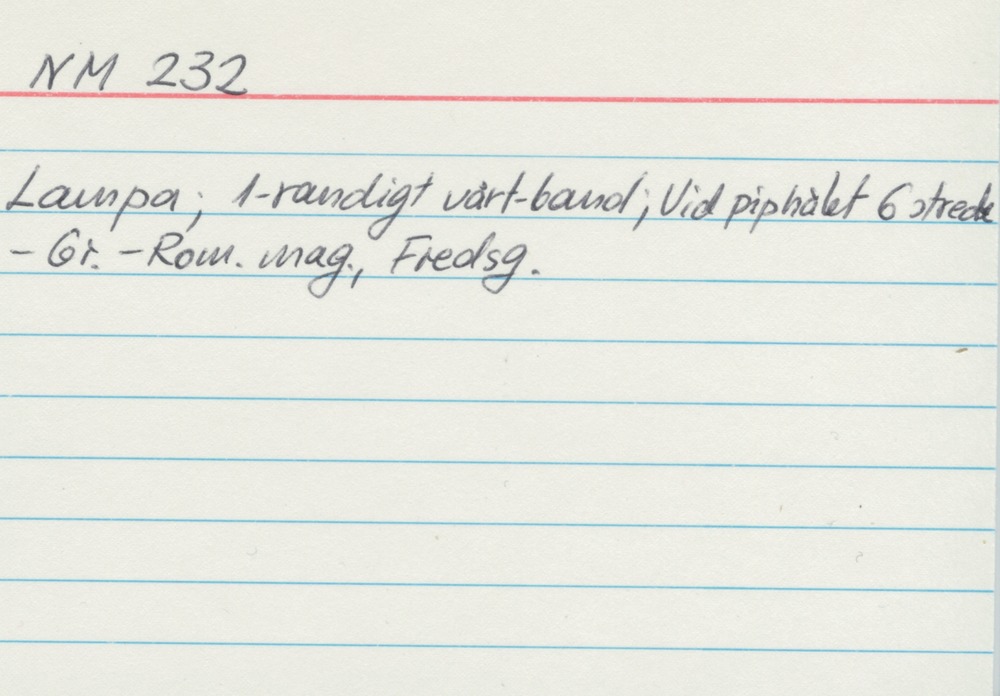 NM 232
Lampa; 1-randigt vårt-band; Vid piphålet 6 streck
- Gr. - Rom. mag., Fredsg.